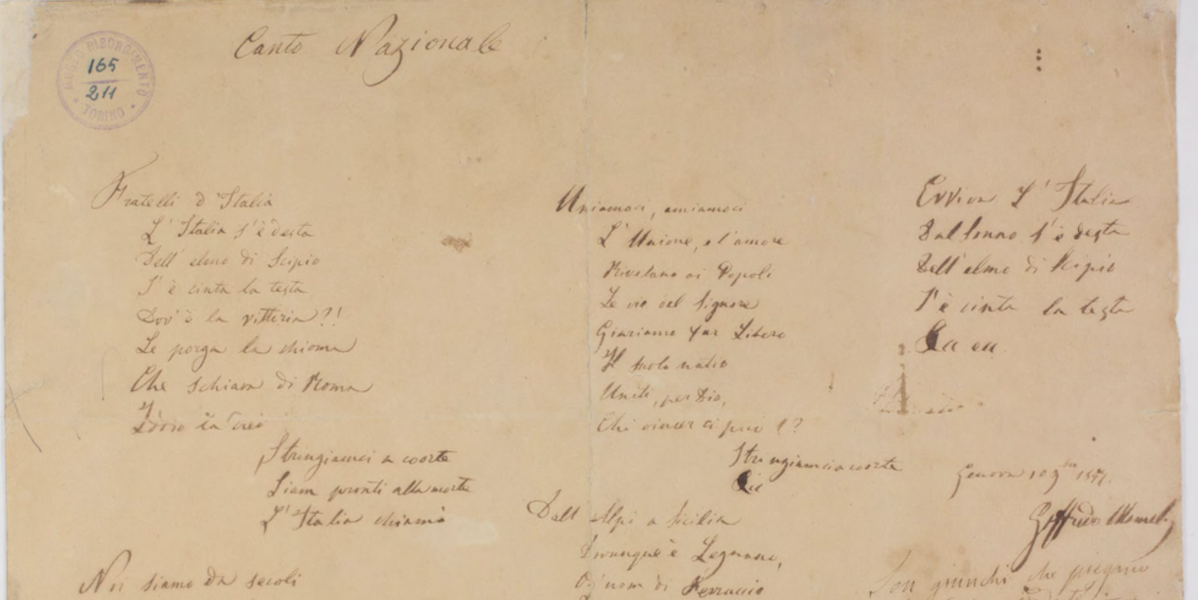 Canto Nazionale
MUSEO RISORGIMENTO
165
211
TORINO
Fratelli d Italia
L' Italia s'è desta
Dell' elmo di Scipio
S' è cinta la testa
Dov' è la vittoria?!
Le porga la chioma
Che schiava di Roma
Iddio la creò
Stringiamci a coorte
Siam pronti alla morte
L' Italia chiamò
Noi siamo da secoli
Uniamoci, amiamoci
L' Unione, e l'amore
Rivelano ai Popoli
Le vie del Signore
Giuriamo far Libero
Il suolo natio
Uniti, per Dio,
Chi vincer ci può !?
Stringiamci a coorte
Dall Alpi a Sicilia
Dovunque è Legnano,
Ogn'uom di Ferruccio
Evviva L' Italia
Dal sonno s' è desta
Dell' elmo di Scipio
S' è cinta la testa
Genova 10 9bre 1847.
Goffredo Mameli
Son giunchi che piegano